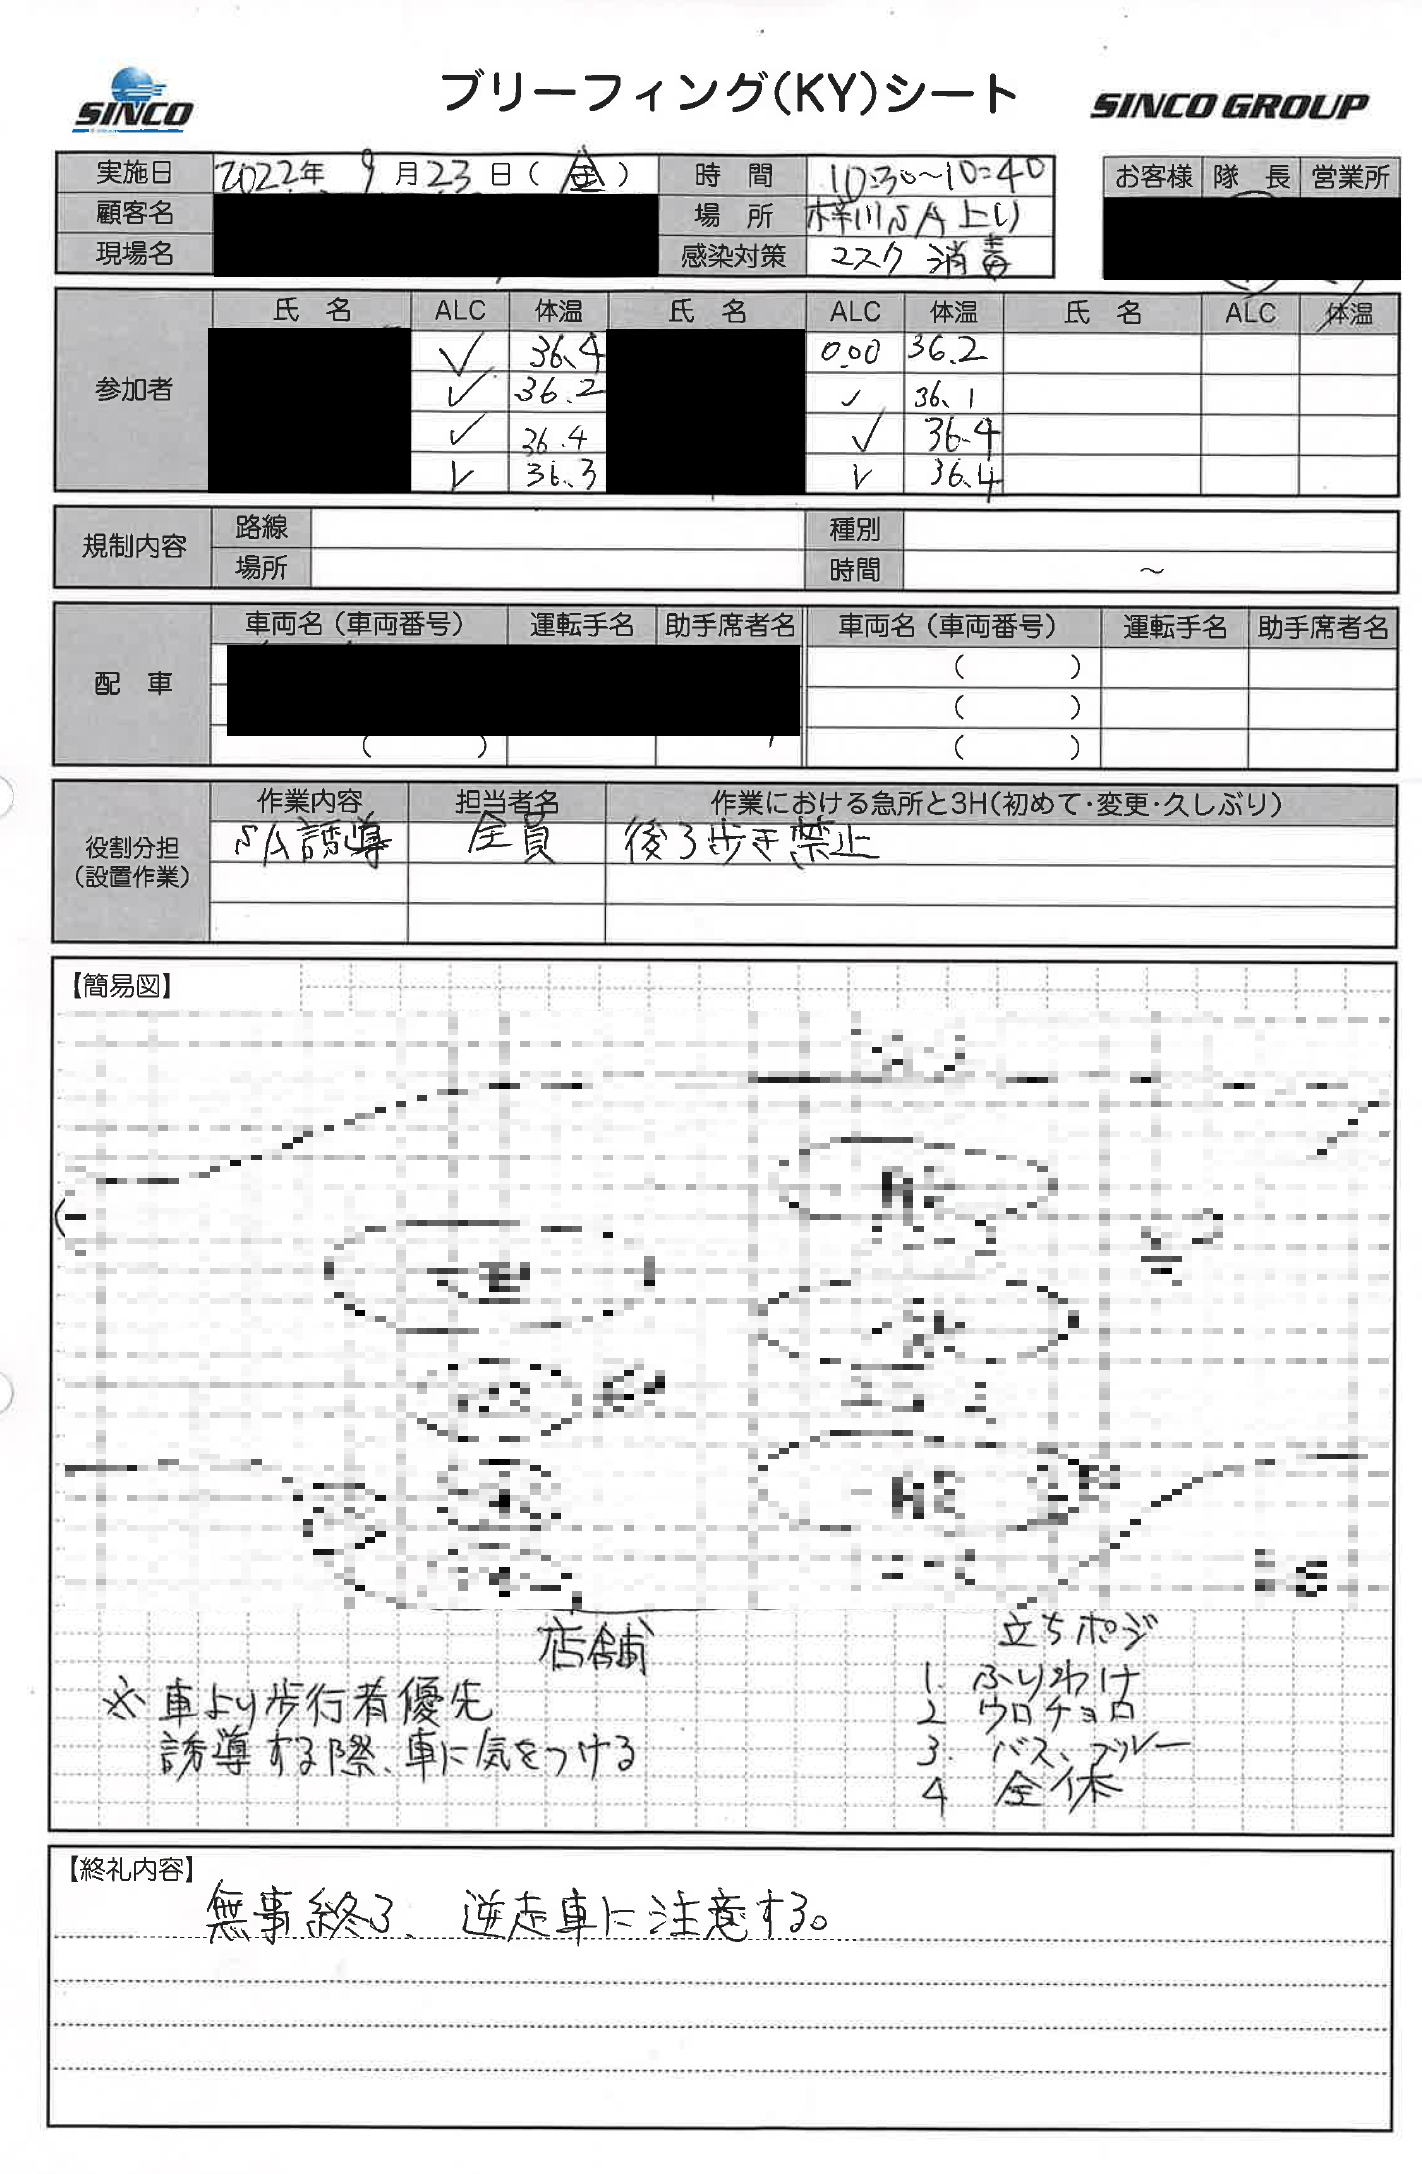 SINCO
ブリーフィング(KY)シート
SINCO GROUP
実施日 2022年 9月23日(金) 時間 10:30～10:40
お客様 隊長 営業所
顧客名 場所 SA上り
現場名 感染対策 マスク 消毒
参加者 氏名 ALC 体温 氏名 ALC 体温 氏名 ALC 体温
✓ 36.4 0.00 36.2
✓ 36.2 ✓ 36.1
✓ 36.4 ✓ 36.4
✓ 36.3 ✓ 36.4
規制内容 路線 種別
場所 時間 ～
配車 車両名(車両番号) 運転手名 助手席者名 車両名(車両番号) 運転手名 助手席者名
( )
( )
( ) ( )
役割分担(設置作業) 作業内容 担当者名 作業における急所と3H(初めて・変更・久しぶり)
SA誘導 全員 後ろ歩き禁止
【簡易図】
店舗
※車より歩行者優先
誘導する際、車に気をつける
立ちポジ
1. ふりわけ
2 ウロチョロ
3. バス、ブルー
4 全休
【終礼内容】
無事終了、逆走車に注意する。